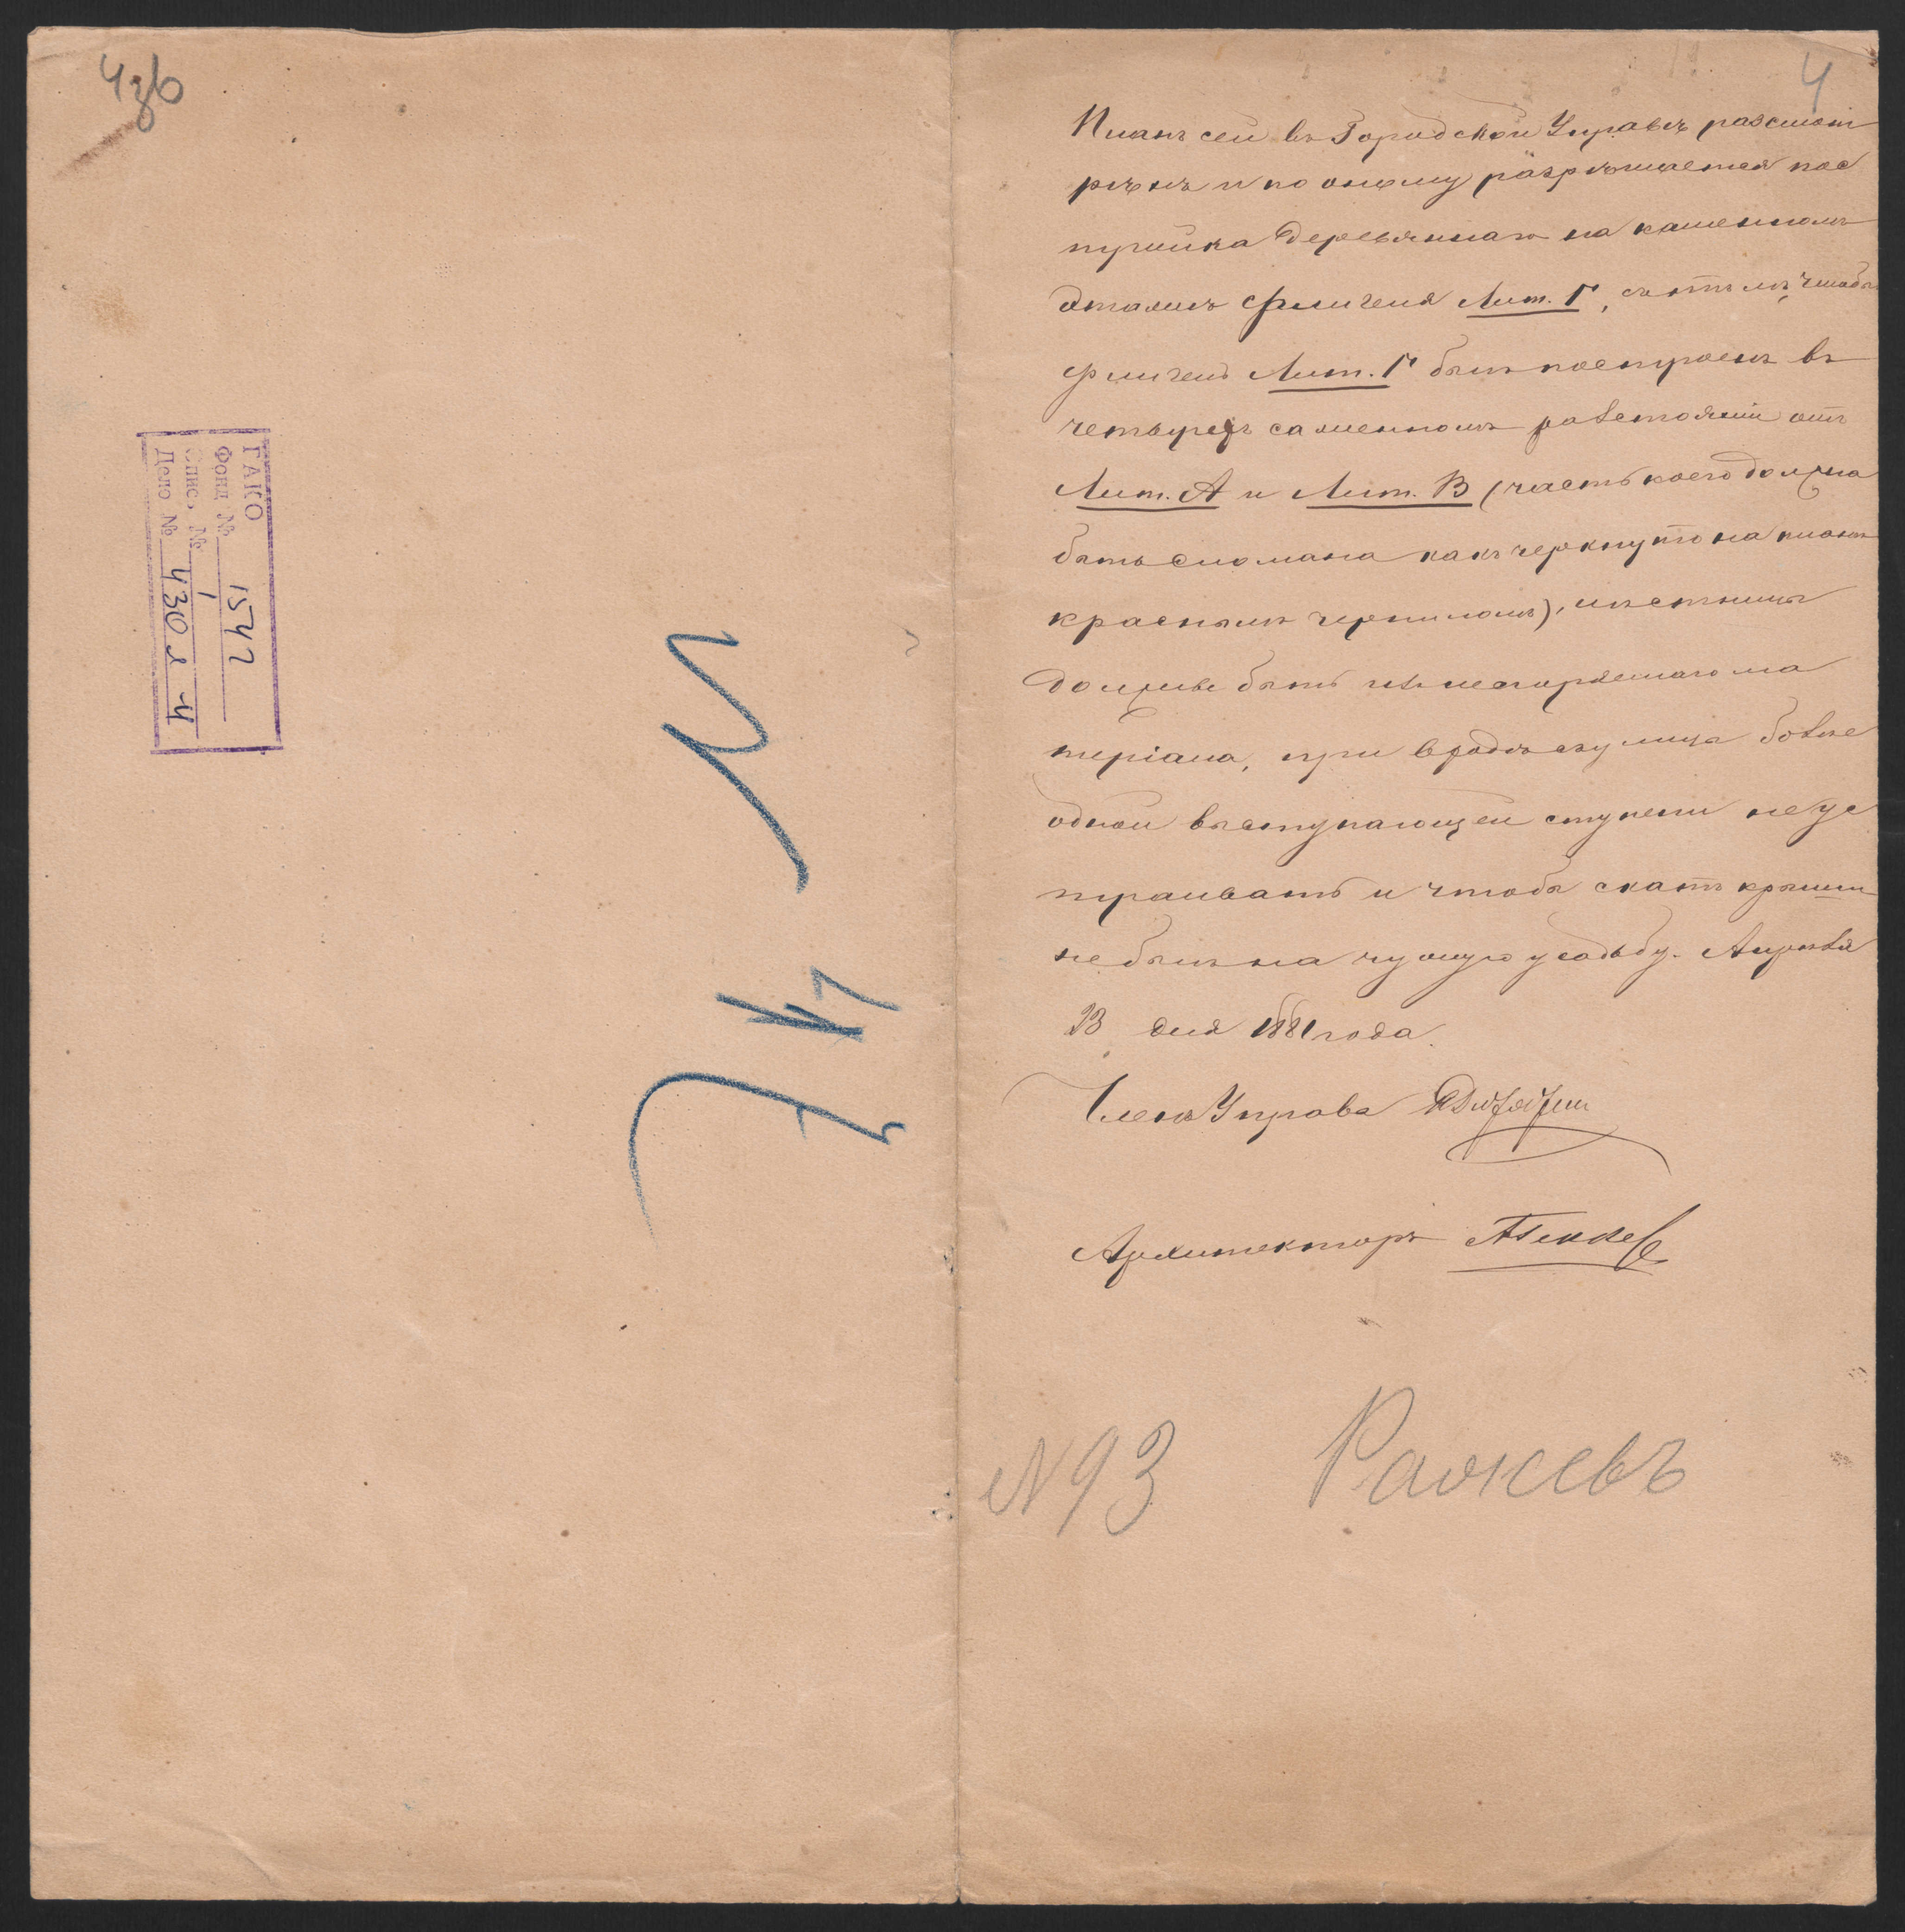 4об
ГАКО
Фонд № 1542
Опись № 1
Дело № 430 л 4
4
Планъ сей въ Городской Управѣ разсмот
рѣнъ и по оному разрѣшается пос
тройка деревяннаго на каменномъ
этажѣ флигеля Лит. Г, съ тѣмъ, чтобы
флигель Лит. Г былъ построенъ въ
четырехъ саженномъ разстоянии отъ
Лит. А и Лит. В (часть коего должна
быть сломана какъ черкнуто на планѣ
красными чернилами), лѣстницы
должны быть изъ несгораемаго ма
теріала, при входѣ съ улицы болѣе
одной выступающей ступени не ус
траивать и чтобы скатъ крыши
не былъ на чужую усадьбу. Апрѣля
23 дня 1881 года.
Членъ Управы
Архитекторъ
№ 93 Ражевъ